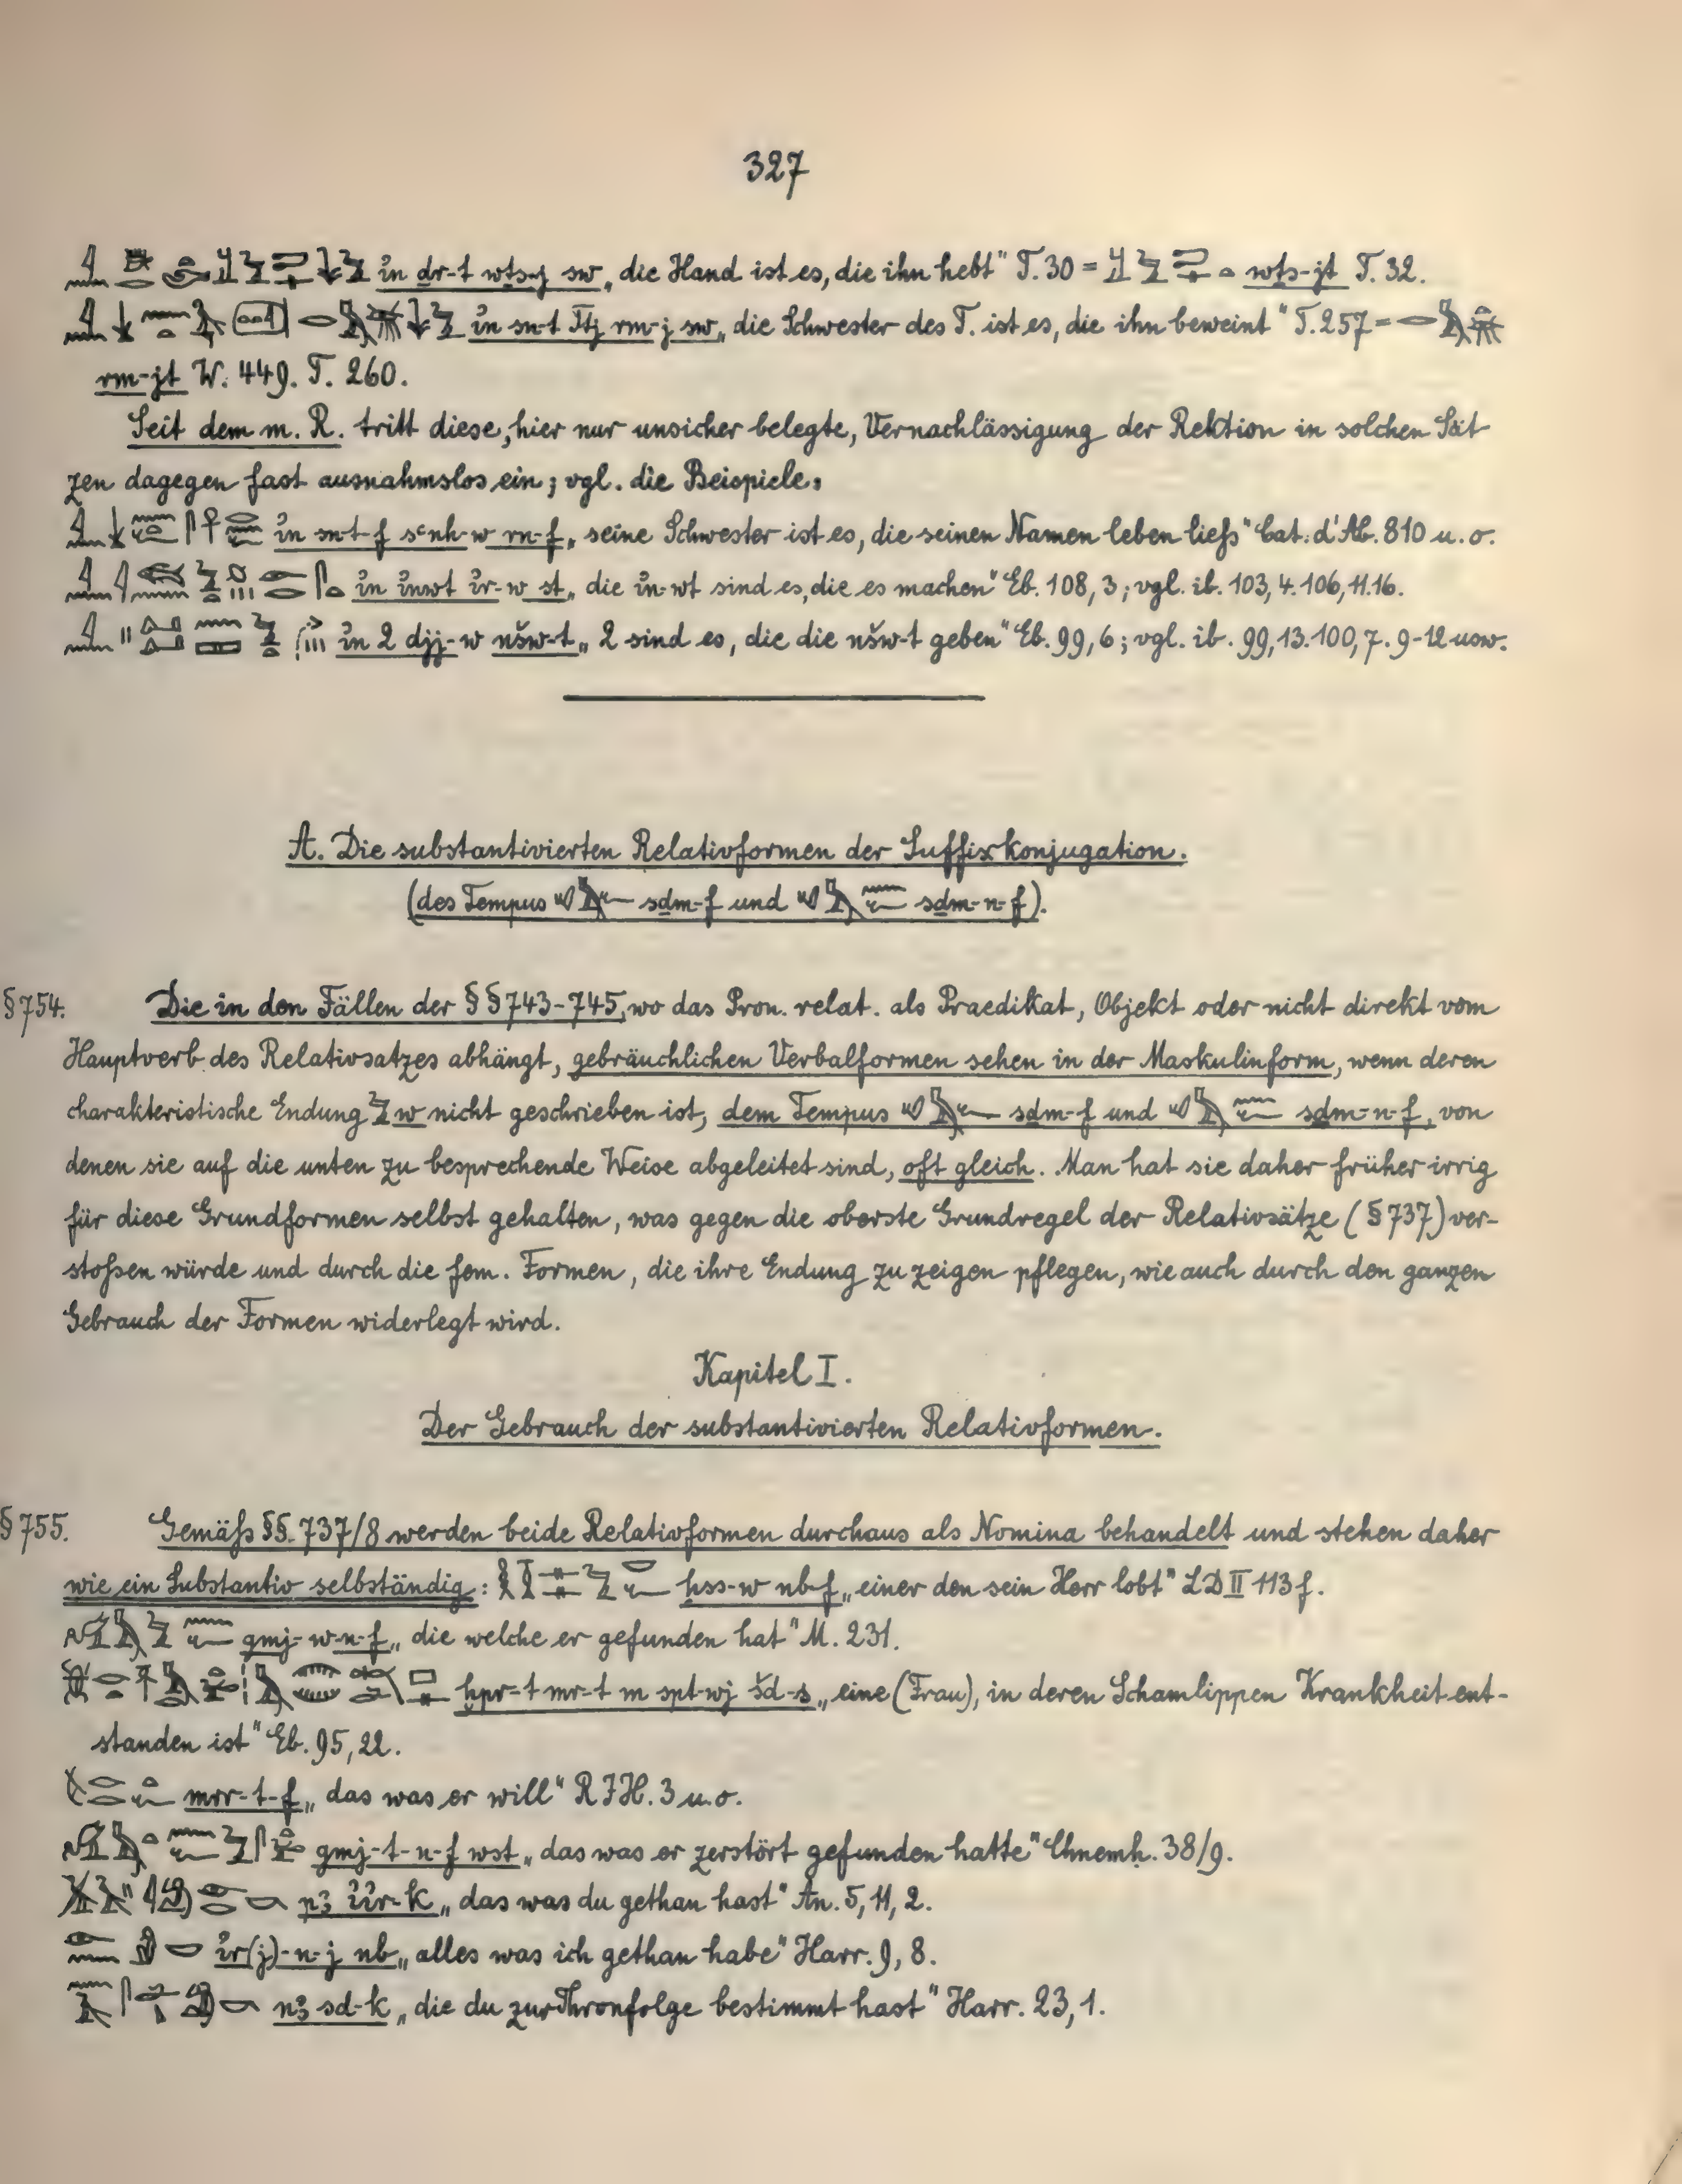 327
i̓n dr-t wṯs-j sw „die Hand ist es, die ihn hebt“ T. 30 = wṯs-jt T. 32.
i̓n sn-t Ttj rm-j sw „die Schwester des T. ist es, die ihn beweint“ T. 257 =
rm-jt W. 449. T. 260.
Seit dem m. R. tritt diese, hier nur unsicher belegte, Vernachlässigung der Rektion in solchen Sät-
zen dagegen fast ausnahmslos ein; vgl. die Beispiele:
i̓n sn-t-f sʿnḫ-w rn-f „seine Schwester ist es, die seinen Namen leben liefs“ Cat. d'Ab. 810 u. o.
i̓n i̓nwt i̓r-w st „die i̓n-wt sind es, die es machen“ Eb. 108, 3; vgl. ib. 103, 4. 106, 11. 16.
i̓n 2 djj-w nšw-t „2 sind es, die die nšw-t geben“ Eb. 99, 6; vgl. ib. 99, 13. 100, 7. 9-12 usw.
A. Die substantivierten Relativformen der Suffixkonjugation.
(des Tempus sḏm-f und sḏm-n-f).
§ 754. Die in den Fällen der §§ 743-745, wo das Pron. relat. als Praedikat, Objekt oder nicht direkt vom
Hauptverb des Relativsatzes abhängt, gebräuchlichen Verbalformen sehen in der Maskulinform, wenn deren
charakteristische Endung w nicht geschrieben ist, dem Tempus sḏm-f und sḏm-n-f, von
denen sie auf die unten zu besprechende Weise abgeleitet sind, oft gleich. Man hat sie daher früher irrig
für diese Grundformen selbst gehalten, was gegen die oberste Grundregel der Relativsätze (§ 737) ver-
stofsen würde und durch die fem. Formen, die ihre Endung zu zeigen pflegen, wie auch durch den ganzen
Gebrauch der Formen widerlegt wird.
Kapitel I.
Der Gebrauch der substantivierten Relativformen.
§ 755. Gemäfs §§. 737/8 werden beide Relativformen durchaus als Nomina behandelt und stehen daher
wie ein Substantiv selbständig: ḥss-w nb-f „einer den sein Herr lobt“ LD II 113 f.
gmj-w-n-f „die welche er gefunden hat“ M. 231.
ḫpr-t mr-t m spt-wj šd-s „eine (Frau), in deren Schamlippen Krankheit ent-
standen ist“ Eb. 95, 22.
mrr-t-f „das was er will“ RIH. 3 u. o.
gmj-t-n-f wst „das was er zerstört gefunden hatte“ Chnemh. 38/9.
pꜣ i̓i̓r-k „das was du gethan hast“ An. 5, 11, 2.
i̓r(j)-n-j nb „alles was ich gethan habe“ Harr. 9, 8.
nꜣ sd-k „die du zur Thronfolge bestimmt hast“ Harr. 23, 1.